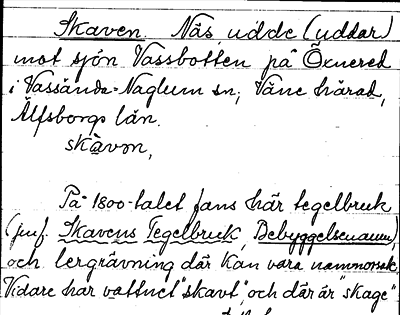 Skaven. Näs, udde (uddar)
mot sjön Vassbotten på Öxnered
i Vassända-Naglum sn, Väne härad,
Älfsborgs län.
skàvən,
På 1800-talet fans här tegelbruk
(jmf. Skavens Tegelbruk, Bebyggelsenamn),
och lergrävning där kan vara namnorsak
Vidare har vattnet "skavt", och där är "skage"